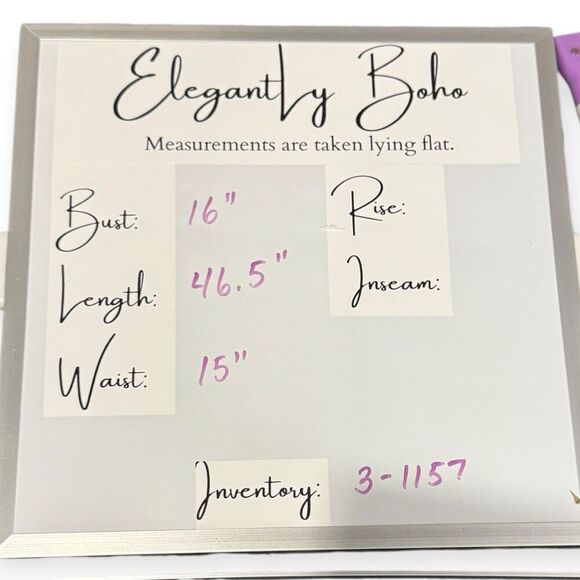 Elegantly Boho
Measurements are taken lying flat.
Bust: 16" Rise:
Length: 46.5" Inseam:
Waist: 15"
Inventory: 3-1157